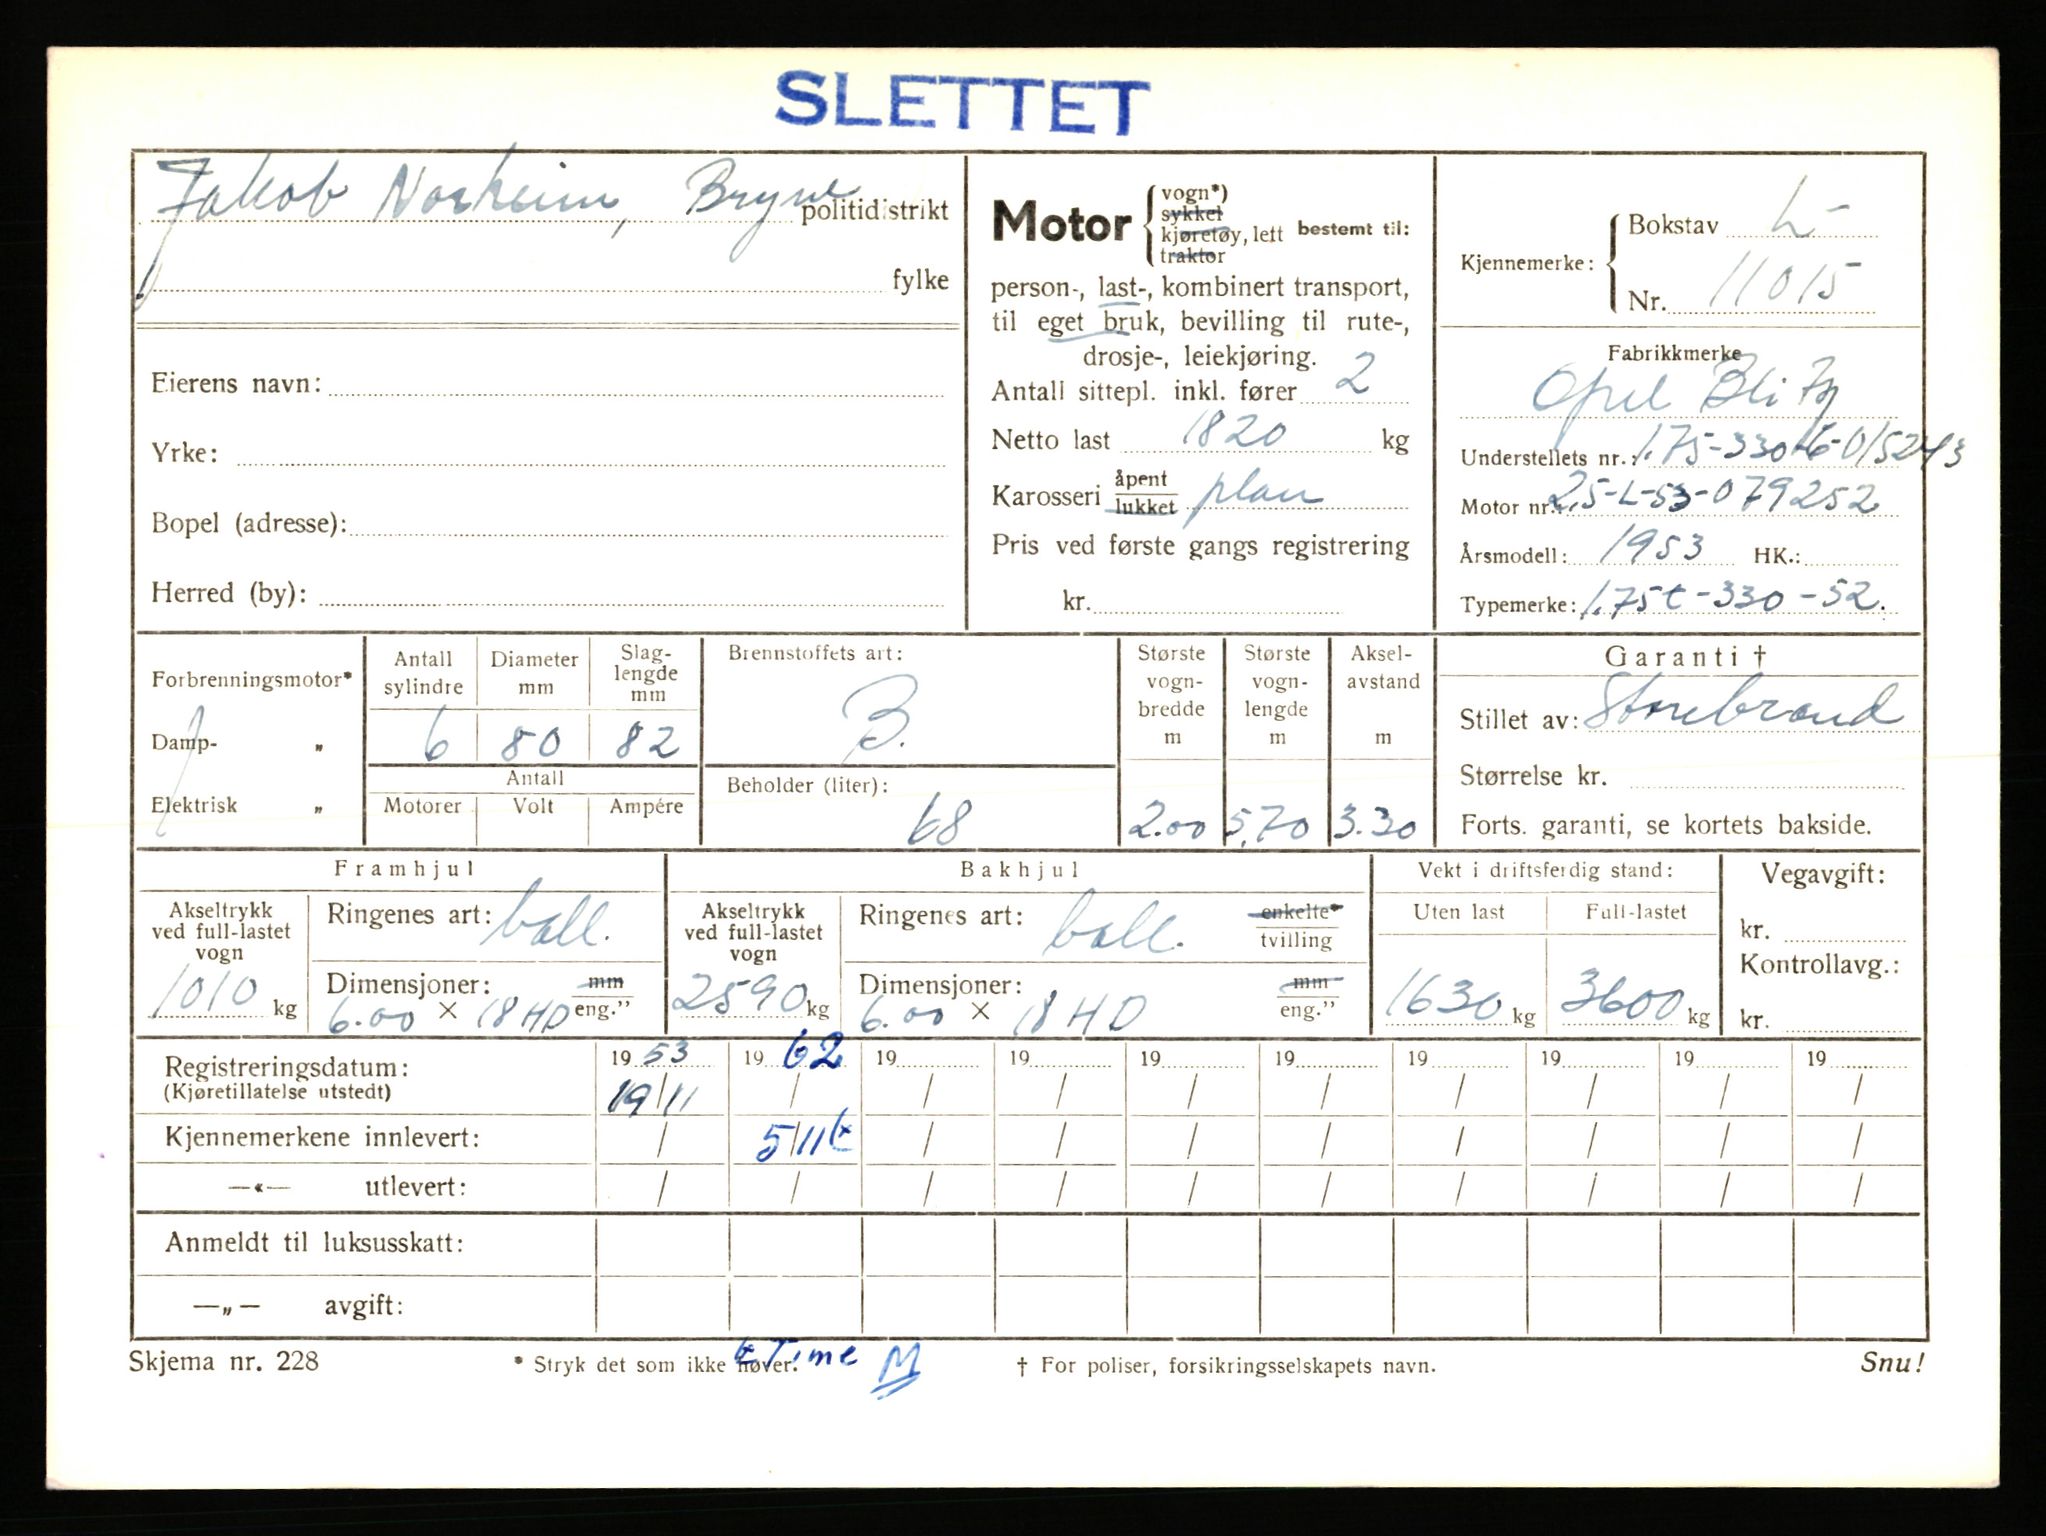 SLETTET
Jakob Norheim, Bryne politidistrikt
fylke
Eierens navn:
Yrke:
Bopel (adresse):
Herred (by):
Motor { vogn*) sykkel kjøretøy, lett traktor bestemt til:
person-, last-, kombinert transport,
til eget bruk, bevilling til rute-,
drosje-, leiekjøring.
Antall sittepl. inkl. fører 2
Netto last 1820 kg
Karosseri åpent lukket plan
Pris ved første gangs registrering
kr.
Kjennemerke: { Bokstav L-
Nr. 11015
Fabrikkmerke
Opel Blitz
Understellets nr.: 1.75-330-6-015243
Motor nr.: 2,5-L-53-079252
Årsmodell: 1953 HK.:
Typemerke: 1.75t-330-52.
Forbrenningsmotor*
Damp- „
Elektrisk „
Antall sylindre 6
Diameter mm 80
Slag-lengde mm 82
Antall
Motorer Volt Ampére
Brennstoffets art:
B.
Beholder (liter):
68
Største vogn-bredde m 2.00
Største vogn-lengde m 5,70
Aksel-avstand m 3.30
Garanti †
Stillet av: Storebrand
Størrelse kr.
Forts. garanti, se kortets bakside.
Framhjul
Akseltrykk ved full-lastet vogn
1010 kg
Ringenes art: ball.
Dimensjoner: mm
6.00 × 18 HD eng.”
Bakhjul
Akseltrykk ved full-lastet vogn
2590 kg
Ringenes art: ball. enkelte* tvilling
Dimensjoner: mm
6.00 × 18 HD eng.”
Vekt i driftsferdig stand:
Uten last Full-lastet
1630 kg 3600 kg
Vegavgift:
kr.
Kontrollavg.:
kr.
Registreringsdatum: 19 53 19 62 19 19 19 19 19 19 19 19
(Kjøretillatelse utstedt) 19/11 / / / / / / / / /
Kjennemerkene innlevert: / 5/11 / / / / / / / /
—«— utlevert: / / / / / / / / / /
Anmeldt til luksusskatt:
—„— avgift:
Time M
Skjema nr. 228 * Stryk det som ikke høver. † For poliser, forsikringsselskapets navn. Snu!